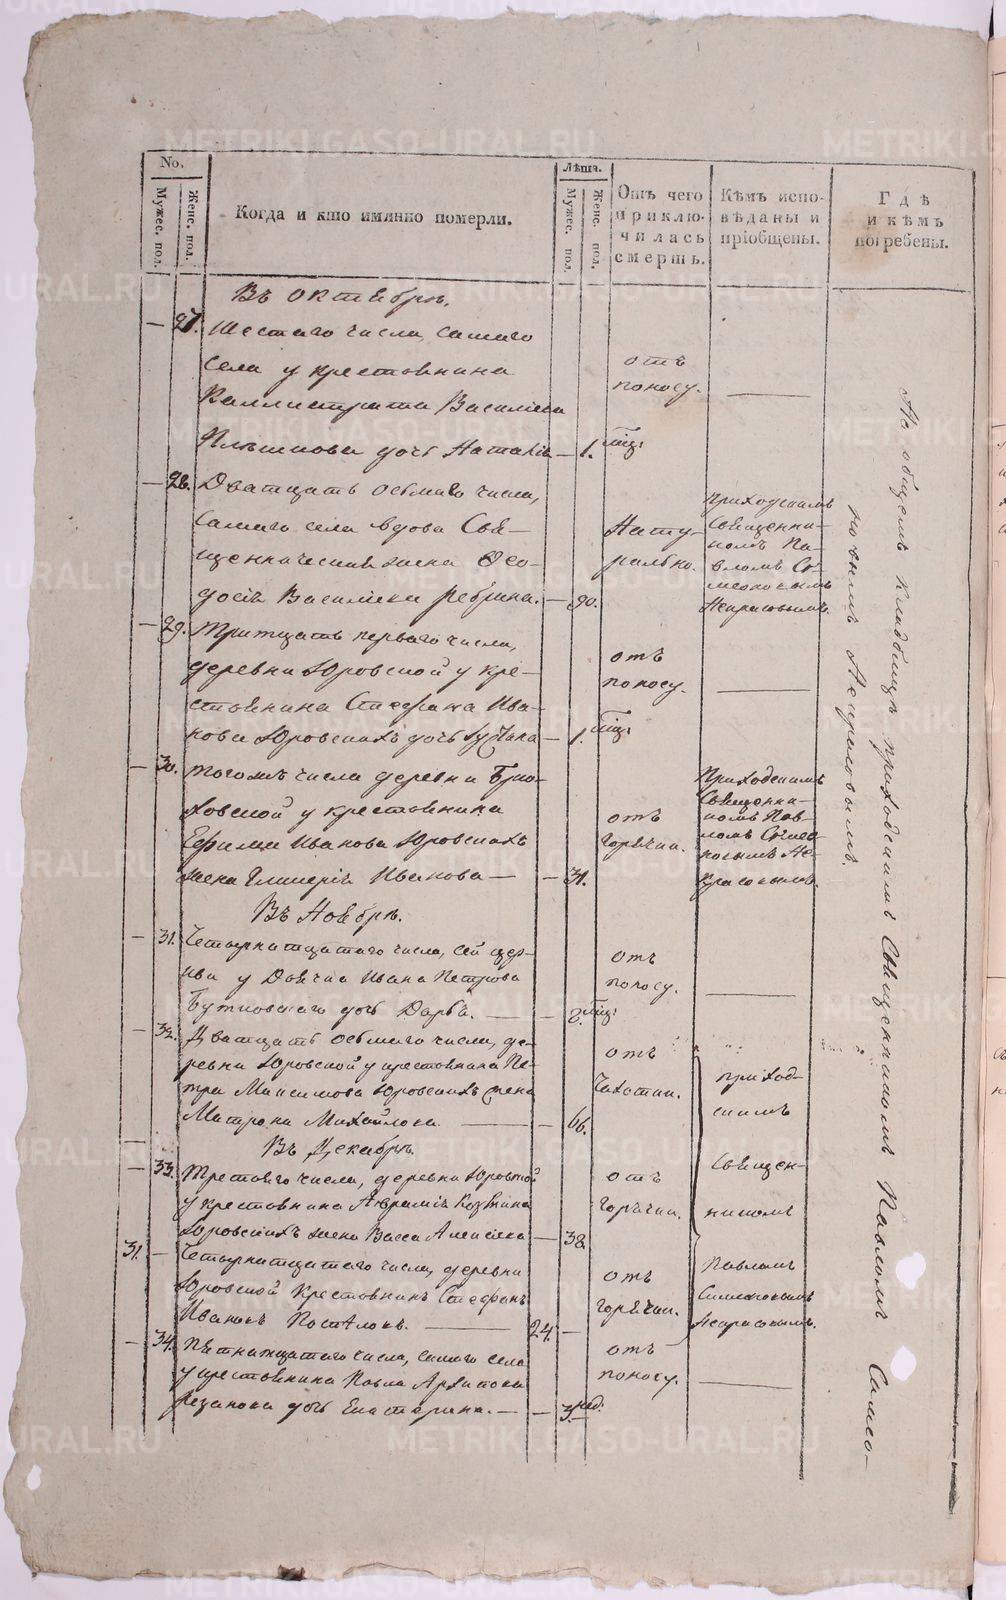 No.
Мужес. пол.
Женс. пол.
Когда и кто имянно померли.
Лѣта.
Мужес. пол.
Женс. пол.
Отъ чего
приклю-
чилась
смерть.
Кѣмъ испо-
вѣданы и
пріобщены.
Гдѣ
и кѣмъ
погребены.
Въ Октябрѣ.
— 27. Шестаго числа, самаго
села у крестьянина
Каллистрата Васильева
дочь Наталія — 1.
отъ
поносу.
— 28. Дватцать осьмаго числа,
самаго села вдова Свя-
щенническая жена Ѳео-
досія Васильева Ребрина. — 90.
Нату-
рально.
приходскимъ
Священни-
комъ Па-
вломъ Си-
меоновымъ
Некрасовымъ.
— 29. Тритцать перваго числа,
деревни Юровской у кре-
стьянина Стефана Ива-
нова Юровскихъ дочь — 1.
отъ
поносу.
— 30. Тогожъ числа деревни Брю-
ховской у крестьянина
Ефима Иванова Юровскихъ
жена Гликерія Иванова — — 31.
отъ
горячки.
Приходскимъ
Священни-
комъ Пав-
ломъ Симео-
новымъ Не-
красовымъ.
Въ Ноябрѣ.
— 31. Четырнатцатаго числа, сей цер-
кви у Дьячка Ивана Петрова
дочь Дарья. — — 2.
отъ
поносу.
— 32. Дватцать осьмаго числа, де-
ревни Юровской у крестьянина Пе-
тра Максимова Юровскихъ жена
Матрона Михайлова. — — 66.
отъ
Чахотки.
приход-
скимъ
Священ-
никомъ
Павломъ
Симеоновымъ
Некрасовымъ.
Въ Декабрѣ.
— 33. Третьяго числа, деревни Юровской
у крестьянина Аврамія Козьмина
Юровскихъ жена Васса Алексѣева — 38.
отъ
горячки.
31. — Четырнатцатаго числа, деревни
Юровской крестьянинъ Стефанъ
Ивановъ Постѣловъ. — 24. —
отъ
горячки.
— 34. Пятнатцатаго числа, самаго села
у крестьянина Павла Архипова
Резанова дочь Екатерина. — — 3. нед.
отъ
поносу.
На общемъ кладбищѣ приходскимъ Священникомъ Павломъ Симео-
новымъ Некрасовымъ
METRIKI.GASO-URAL.RU